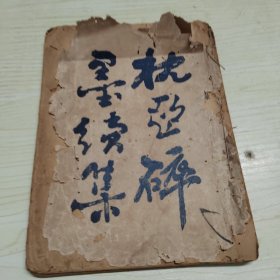 枕亞碎
墨續集